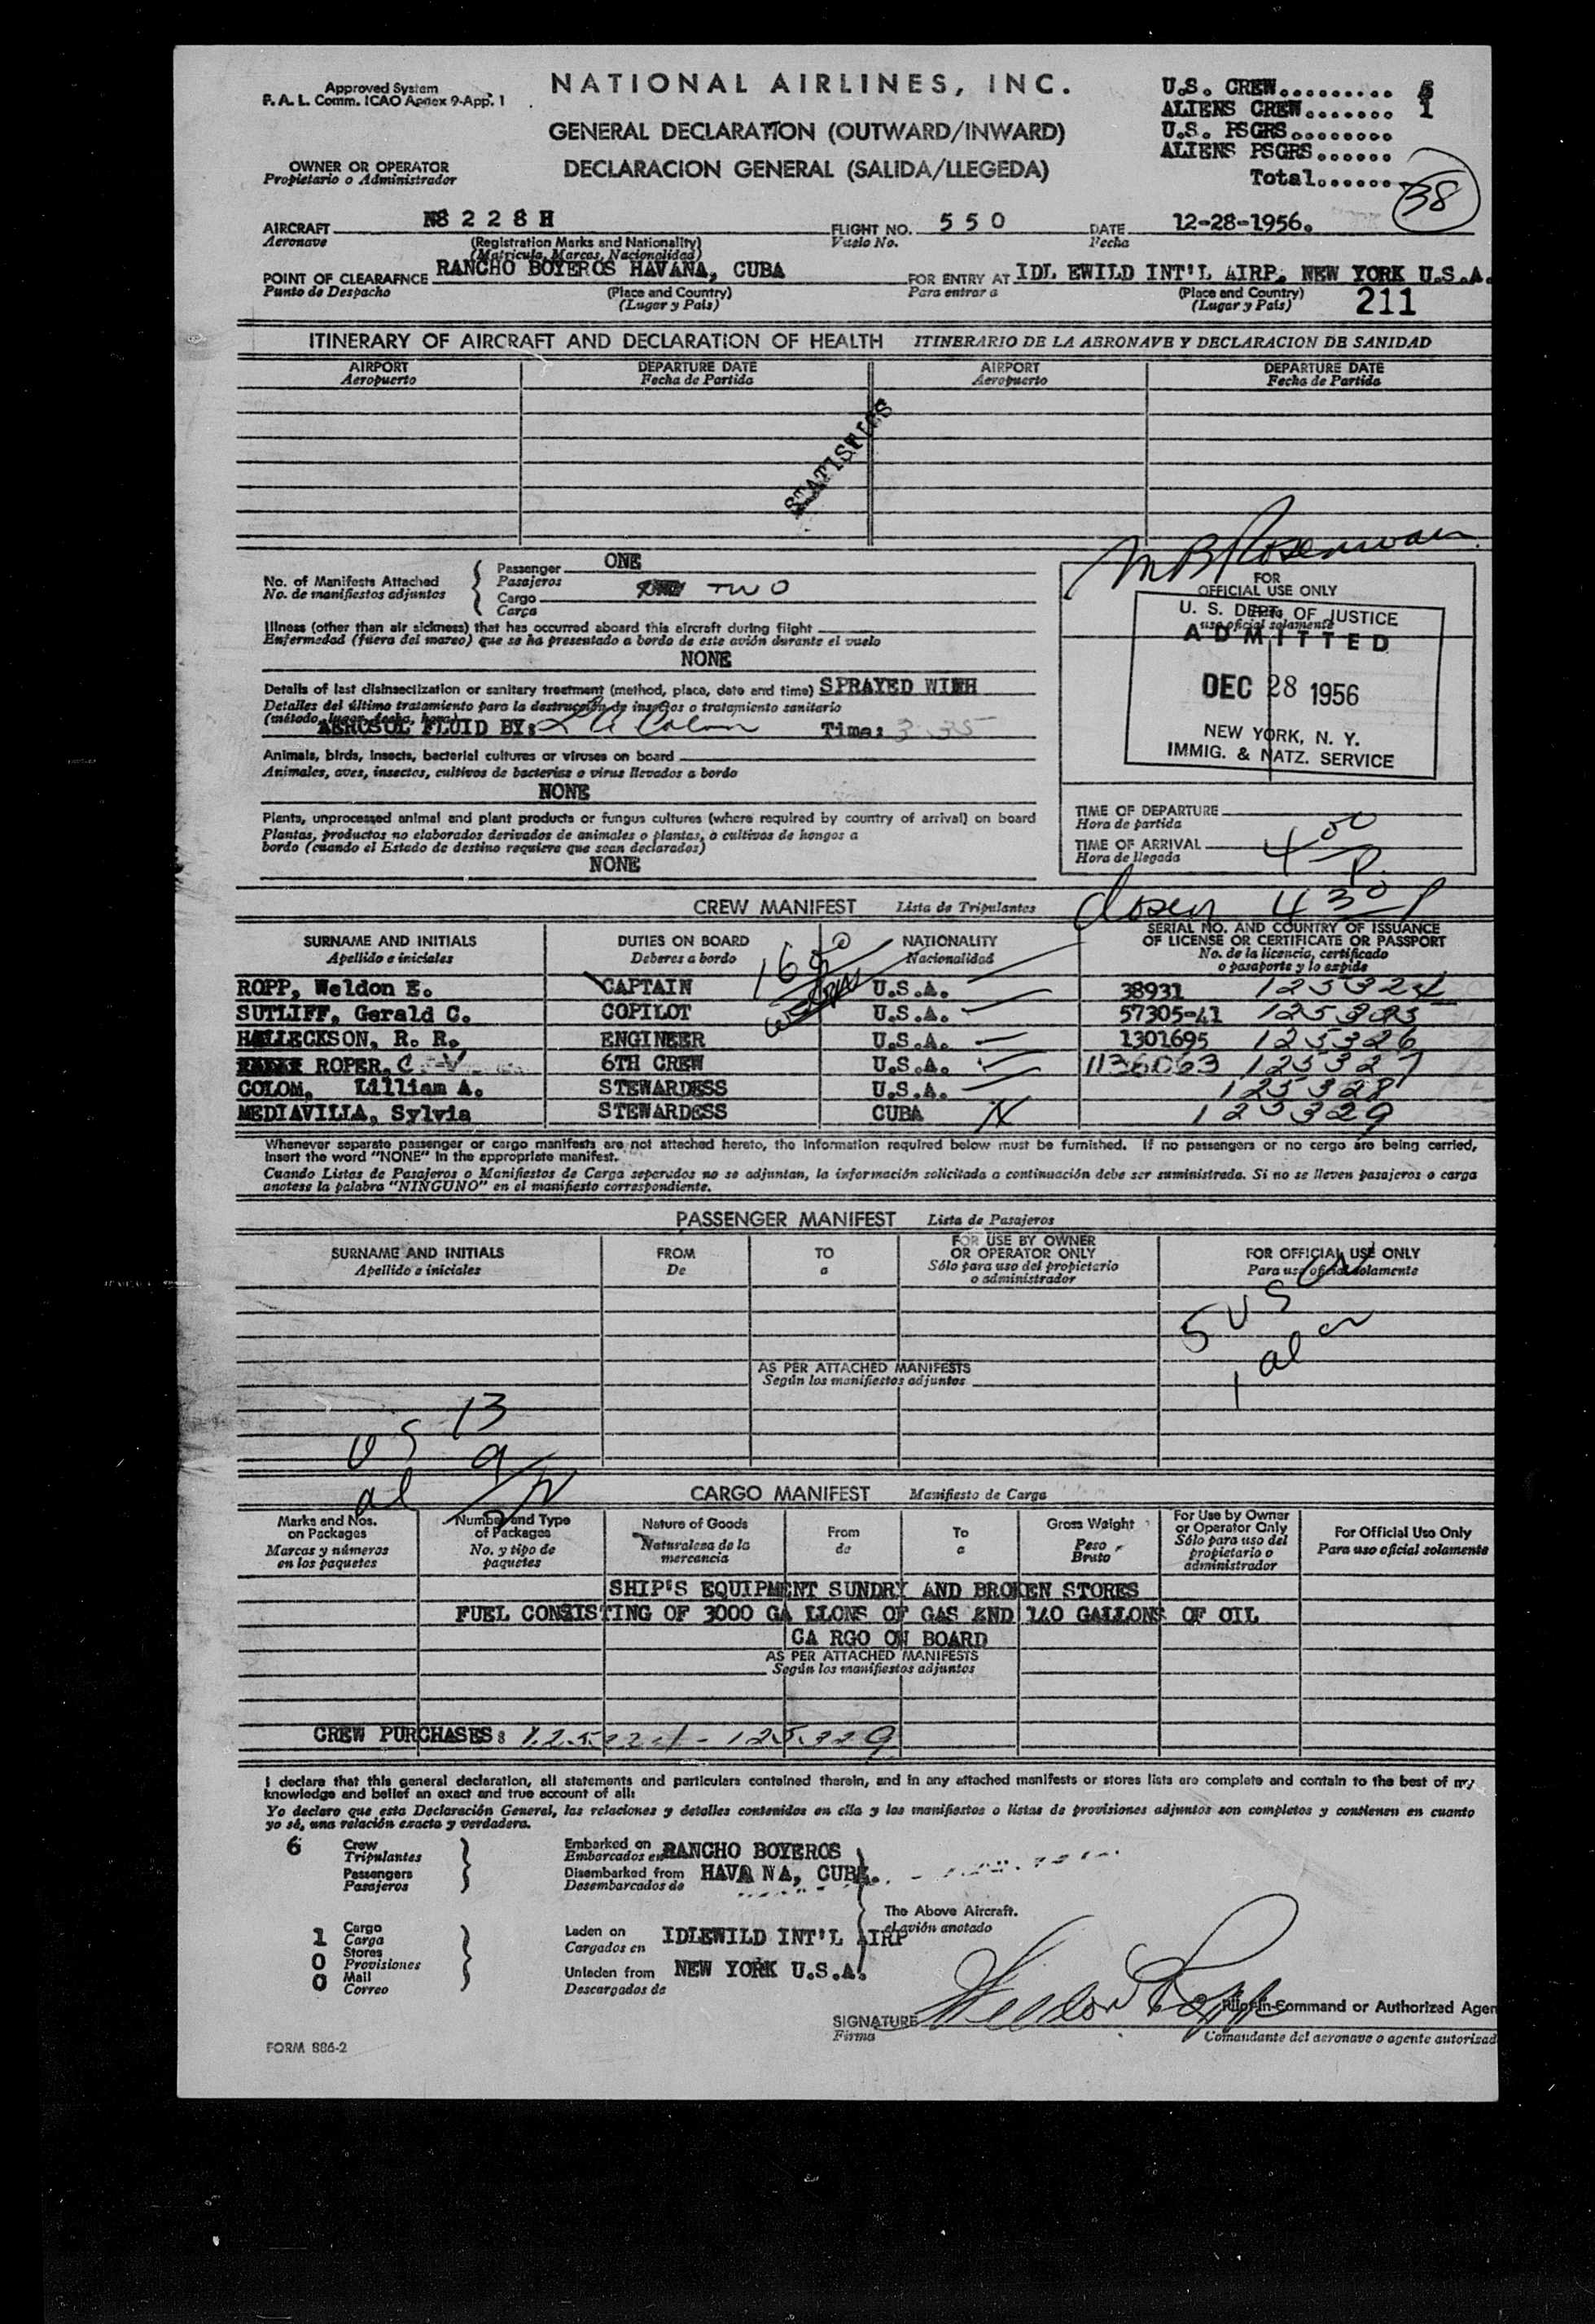 Approved System
F. A. L. Comm. ICAO Annex 9-App. 1
NATIONAL AIRLINES, INC.
GENERAL DECLARATION (OUTWARD/INWARD)
DECLARACION GENERAL (SALIDA/LLEGEDA)
U.S. CREW......... 5
ALIENS CREW....... 1
U.S. PSGRS........
ALIENS PSGRS......
Total.......
38
OWNER OR OPERATOR
Propietario o Administrador
AIRCRAFT N8 2 2 8 H FLIGHT NO. 5 5 0 DATE 12-28-1956.
Aeronave (Registration Marks and Nationality) Vuelo No. Fecha
(Matricula, Marcas, Nacionalidad)
POINT OF CLEARAFNCE RANCHO BOYEROS HAVANA, CUBA FOR ENTRY AT IDL EWILD INT'L AIRP. NEW YORK U.S.A.
Punto de Despacho (Place and Country) Para entrar a (Place and Country) 211
(Lugar y País) (Lugar y País)
ITINERARY OF AIRCRAFT AND DECLARATION OF HEALTH ITINERARIO DE LA AERONAVE Y DECLARACION DE SANIDAD
AIRPORT DEPARTURE DATE AIRPORT DEPARTURE DATE
Aeropuerto Fecha de Partida Aeropuerto Fecha de Partida
STATISTICS
No. of Manifests Attached Passenger ONE
No. de manifiestos adjuntos Pasajeros
Cargo TWO
Carga
Illness (other than air sickness) that has occurred aboard this aircraft during flight
Enfermedad (fuera del mareo) que se ha presentado a bordo de este avión durante el vuelo
NONE
Details of last disinsectization or sanitary treatment (method, place, date and time) SPRAYED WITH
Detalles del último tratamiento para la destrucción de insectos o tratamiento sanitario
(método, lugar, fecha, hora)
AEROSOL FLUID BY: L A Colom Time: 3 35
Animals, birds, insects, bacterial cultures or viruses on board
Animales, aves, insectos, cultivos de bacterias o virus llevados a bordo
NONE
Plants, unprocessed animal and plant products or fungus cultures (where required by country of arrival) on board
Plantas, productos no elaborados derivados de animales o plantas, o cultivos de hongos a
bordo (cuando el Estado de destino requiere que sean declarados)
NONE
FOR
OFFICIAL USE ONLY
uso oficial solamente
U. S. DEPT. OF JUSTICE
ADMITTED
DEC 28 1956
NEW YORK, N. Y.
IMMIG. & NATZ. SERVICE
TIME OF DEPARTURE
Hora de partida
TIME OF ARRIVAL 4 00 P.
Hora de llegada
430 P
CREW MANIFEST Lista de Tripulantes
SURNAME AND INITIALS DUTIES ON BOARD NATIONALITY SERIAL NO. AND COUNTRY OF ISSUANCE
OF LICENSE OR CERTIFICATE OR PASSPORT
Apellido e iniciales Deberes a bordo Nacionalidad No. de la licencia, certificado
o pasaporte y lo expide
ROPP, Weldon E. CAPTAIN U.S.A. 38931 125324
SUTLIFF, Gerald C. COPILOT U.S.A. 57305-41
HALLECKSON, R. R. ENGINEER U.S.A. 1301695 125326
ROPER, C. V 6TH CREW U.S.A. 1136063 125327
COLOM, Lilliam A. STEWARDESS U.S.A. 125328
MEDIAVILLA, Sylvia STEWARDESS CUBA X 125329
Whenever separate passenger or cargo manifests are not attached hereto, the information required below must be furnished. If no passengers or no cargo are being carried,
insert the word "NONE" in the appropriate manifest.
Cuando Listas de Pasajeros o Manifiestos de Carga separados no se adjuntan, la información solicitada a continuación debe ser suministrada. Si no se lleven pasajeros o carga
anotese la palabra "NINGUNO" en el manifiesto correspondiente.
PASSENGER MANIFEST Lista de Pasajeros
SURNAME AND INITIALS FROM TO FOR USE BY OWNER
OR OPERATOR ONLY FOR OFFICIAL USE ONLY
Apellido e iniciales De a Sólo para uso del propietario
o administrador Para uso oficial solamente
5 US
1 al
AS PER ATTACHED MANIFESTS
Según los manifiestos adjuntos
US 13
al 9
CARGO MANIFEST Manifiesto de Carga
Marks and Nos.
on Packages
Marcas y números
en los paquetes
Number and Type
of Packages
No. y tipo de
paquetes
Nature of Goods
Naturalesa de la
mercancia
From
de
To
a
Gross Weight
Peso
Bruto
For Use by Owner
or Operator Only
Sólo para uso del
propietario o
administrador
For Official Use Only
Para uso oficial solamente
SHIP'S EQUIPMENT SUNDRY AND BROKEN STORES
FUEL CONSISTING OF 3000 GA LLONS OF GAS AND 140 GALLONS OF OIL
CA RGO ON BOARD
AS PER ATTACHED MANIFESTS
Según los manifiestos adjuntos
CREW PURCHASES: 125324 - 125329
I declare that this general declaration, all statements and particulars contained therein, and in any attached manifests or stores lists are complete and contain to the best of my
knowledge and belief an exact and true account of all:
Yo declaro que esta Declaración General, las relaciones y detalles contenidos en ella y los manifiestos o listas de provisiones adjuntos son completos y contienen en cuanto
yo sé, una relación exacta y verdadera.
6 Crew
Tripulantes
Passengers
Pasajeros
Embarked on RANCHO BOYEROS
Embarcados en
Disembarked from HAVA NA, CUBA.
Desembarcados de
The Above Aircraft.
el avión anotado
1 Cargo
Carga
0 Stores
Provisiones
0 Mail
Correo
Laden on IDLEWILD INT'L AIRP
Cargados en
Unladen from NEW YORK U.S.A.
Descargados de
SIGNATURE Weldon E Ropp Pilot-in-Command or Authorized Agen
Firma Comandante del aeronave o agente autorizad
FORM 886-2